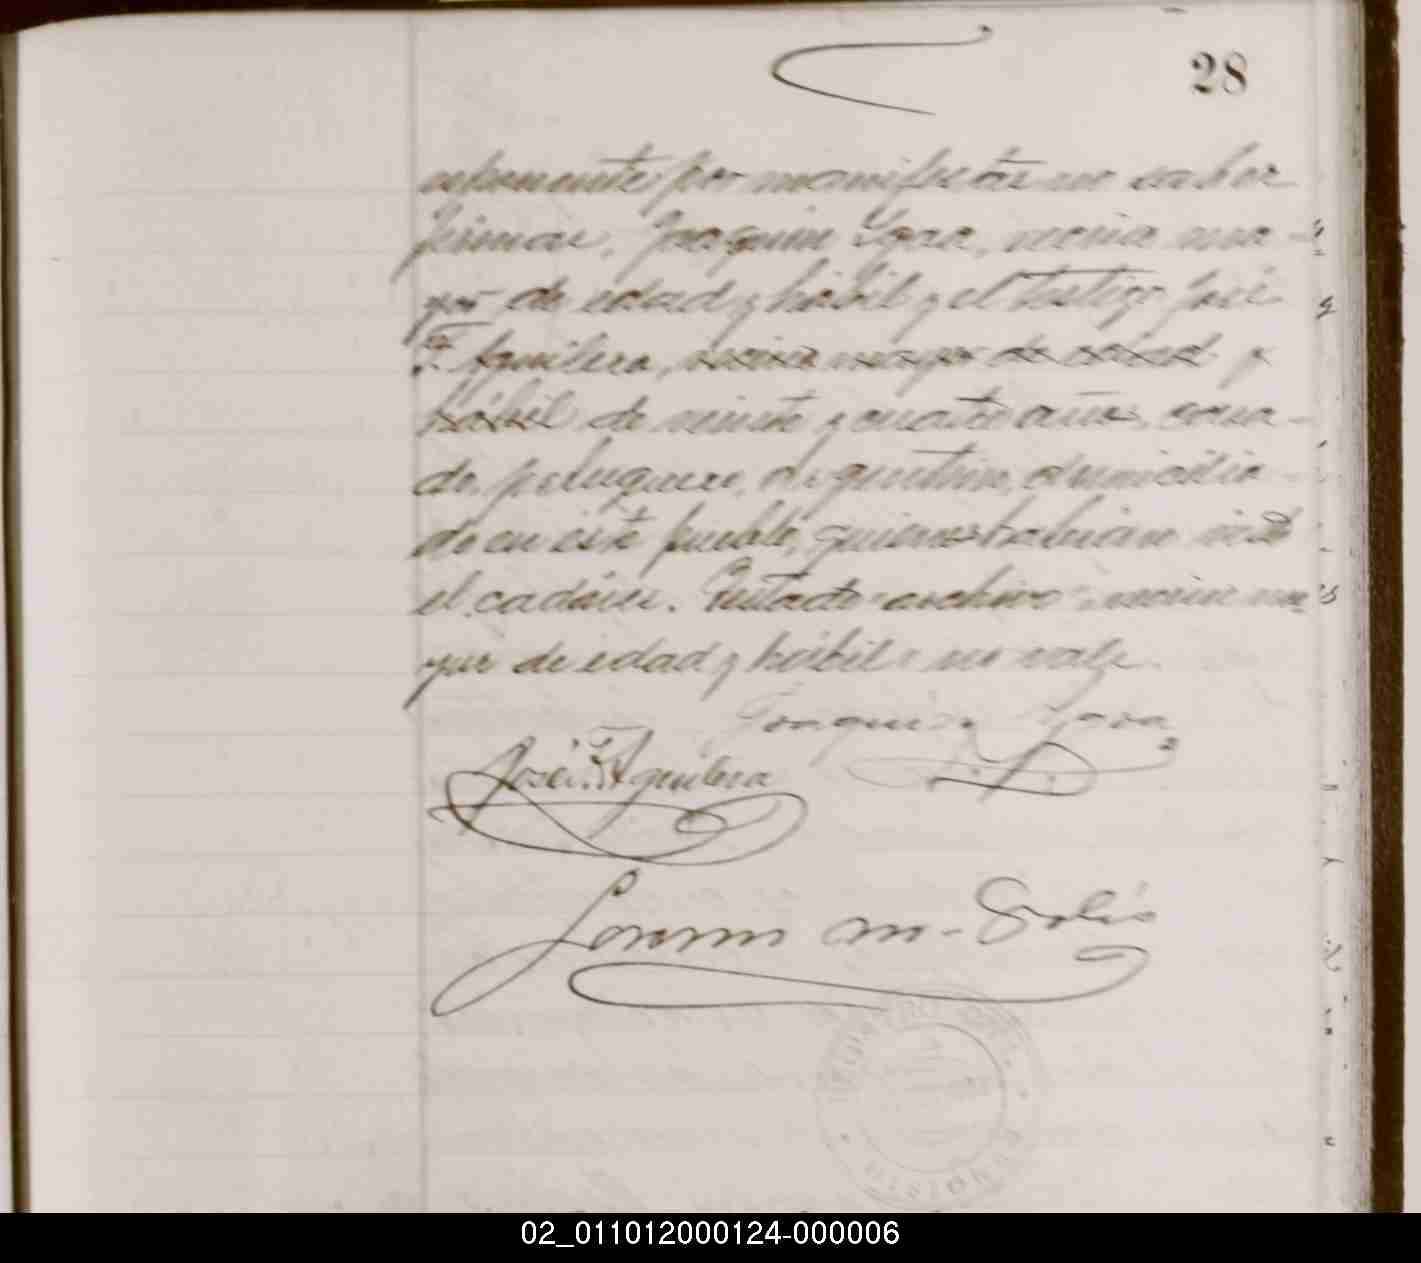 28
por manifestar no saber
firmar, Joaquin Ygoa, vecino ma-
yor de edad y hábil y el testigo José
F. Aguilera, vecino mayor de edad y
hábil de veinte y cuatro años, casa-
do, peluquero, Argentino, domicilia-
do en este pueblo, quienes habian visto
el cadáver. Testado-archivo-vecino ma
yor de edad y hábil-no vale.
Joaquin
José F. Aguilera
Lorenzo M. Solis
REGISTRO CIVIL
MISIONES
02_011012000124-000006